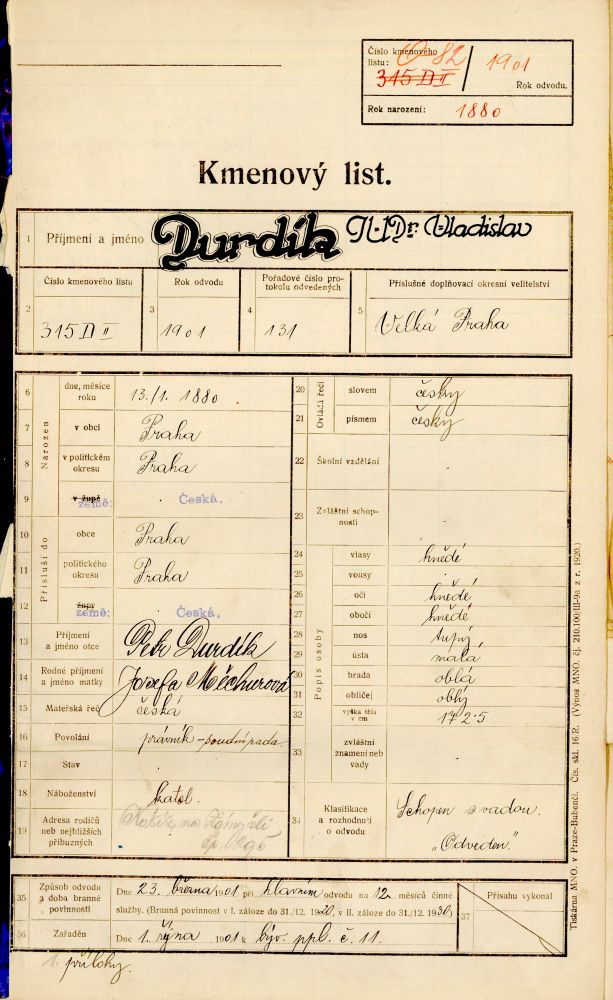 Číslo kmenového
listu: 82 / 1901
315 D II Rok odvodu.
Rok narození: 1880
Kmenový list.
1 Příjmení a jméno Durdík JUDr. Vladislav
Číslo kmenového listu Rok odvodu Pořadové číslo pro-
tokolu odvedených Příslušné doplňovací okresní velitelství
2 315 D II 3 1901 4 131 5 Velká Praha
Narozen
6 dne, měsíce
roku 13./1. 1880
7 v obci Praha
8 v politickém
okresu Praha
9 v župě
země: Česká.
Přísluší do
10 obce Praha
11 politického
okresu Praha
12 župy
země: Česká.
13 Příjmení
a jméno otce Petr Durdík
14 Rodné příjmení
a jméno matky Josefa Měchurová
15 Mateřská řeč česká
16 Povolání právník - soudní rada
17 Stav
18 Náboženství katol.
19 Adresa rodičů
neb nejbližších
příbuzných
Ovládá řeči
20 slovem česky
21 písmem česky
22 Školní vzdělání
23 Zvláštní schop-
nosti
Popis osoby
24 vlasy hnědé
25 vousy
26 oči hnědé
27 obočí hnědé
28 nos tupý
29 ústa malá
30 brada oblá
31 obličej oblý
32 výška těla
v cm 172·5
33 zvláštní
znamení neb
vady
34 Klasifikace
a rozhodnutí
o odvodu Schopen s vadou.
„Odveden"
35 Způsob odvodu
a doba branné
povinnosti Dne 23. března 1901 při hlavním odvodu na 12 měsíců činné
služby. (Branná povinnost v I. záloze do 31./12. 1920, v II. záloze do 31./12. 1930)
36 Zařaděn Dne 1. října 1901 k býv. ppl. č. 11.
37 Přísahu vykonal
1 přílohy.
Tiskárna MNO. v Praze-Bubenči. Čís. skl. 16/R. (Výnos MNO. čj. 210.100/III-9a z r. 1920.)